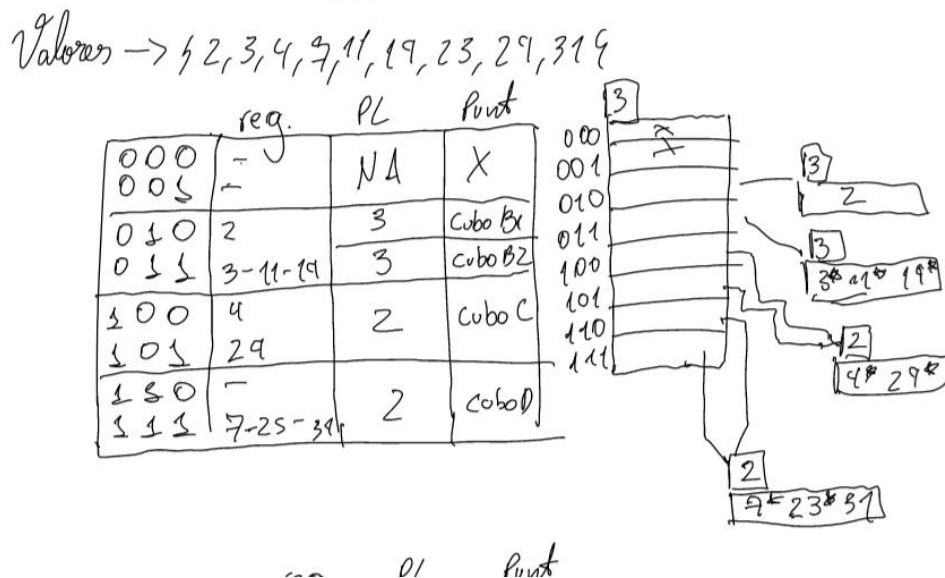 Valores -> { 2, 3, 4, 7, 11, 19, 23, 29, 31 }
reg. PL Punt
000 - NA X
001 -
010 2 3 cubo B1
011 3-11-19 3 cubo B2
100 4 2 cubo C
101 29
110 - 2 cubo D
111 7-23-31
3
000
001
010
011
100
101
110
111
3
2
3
3* 11* 19*
2
4* 29*
2
7* 23* 31
reg PL Punt